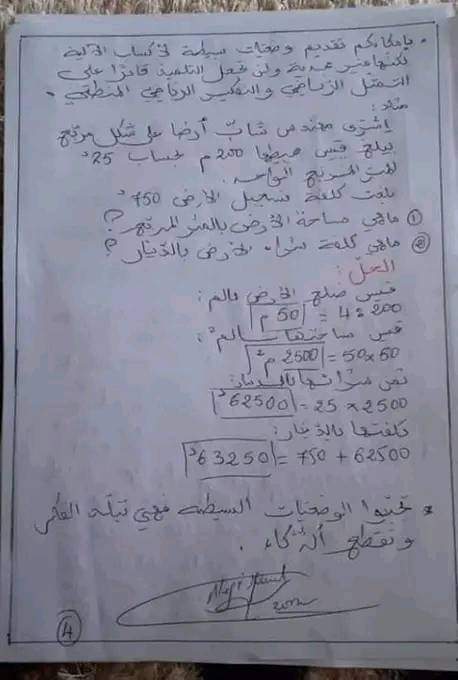 * بإمكانكم تقديم وضعيات بسيطة في كساب الآلية
لكنها غير مجدية ولن تجعل التلميذ قادرًا على
التمثل الرياضي والتفكير الرياضي المنطقي.
مثال:
اشترى مهندس شابّ أرضا على شكل مربّع
يبلغ قيس محيطها 200 م بحساب 25 د
للمتر المربع الواحد.
بلغت كلفة تسجيل الأرض 750 د
① ماهي مساحة الأرض بالمتر المربّع؟
② ماهي كلفة شراء الأرض بالدّينار؟
الحلّ:
قيس ضلع الأرض بالم:
200 : 4 = 50 م
قيس مساحتها بالم²:
50 × 50 = 2500 م²
ثمن شرائها بالدينار:
2500 × 25 = 62500 د
كلفتها بالدّينار:
62500 + 750 = 63250 د
* تجنبوا الوضعيات البسيطة فهي تبلّد الفكر
وتقطع الذّكاء.
④